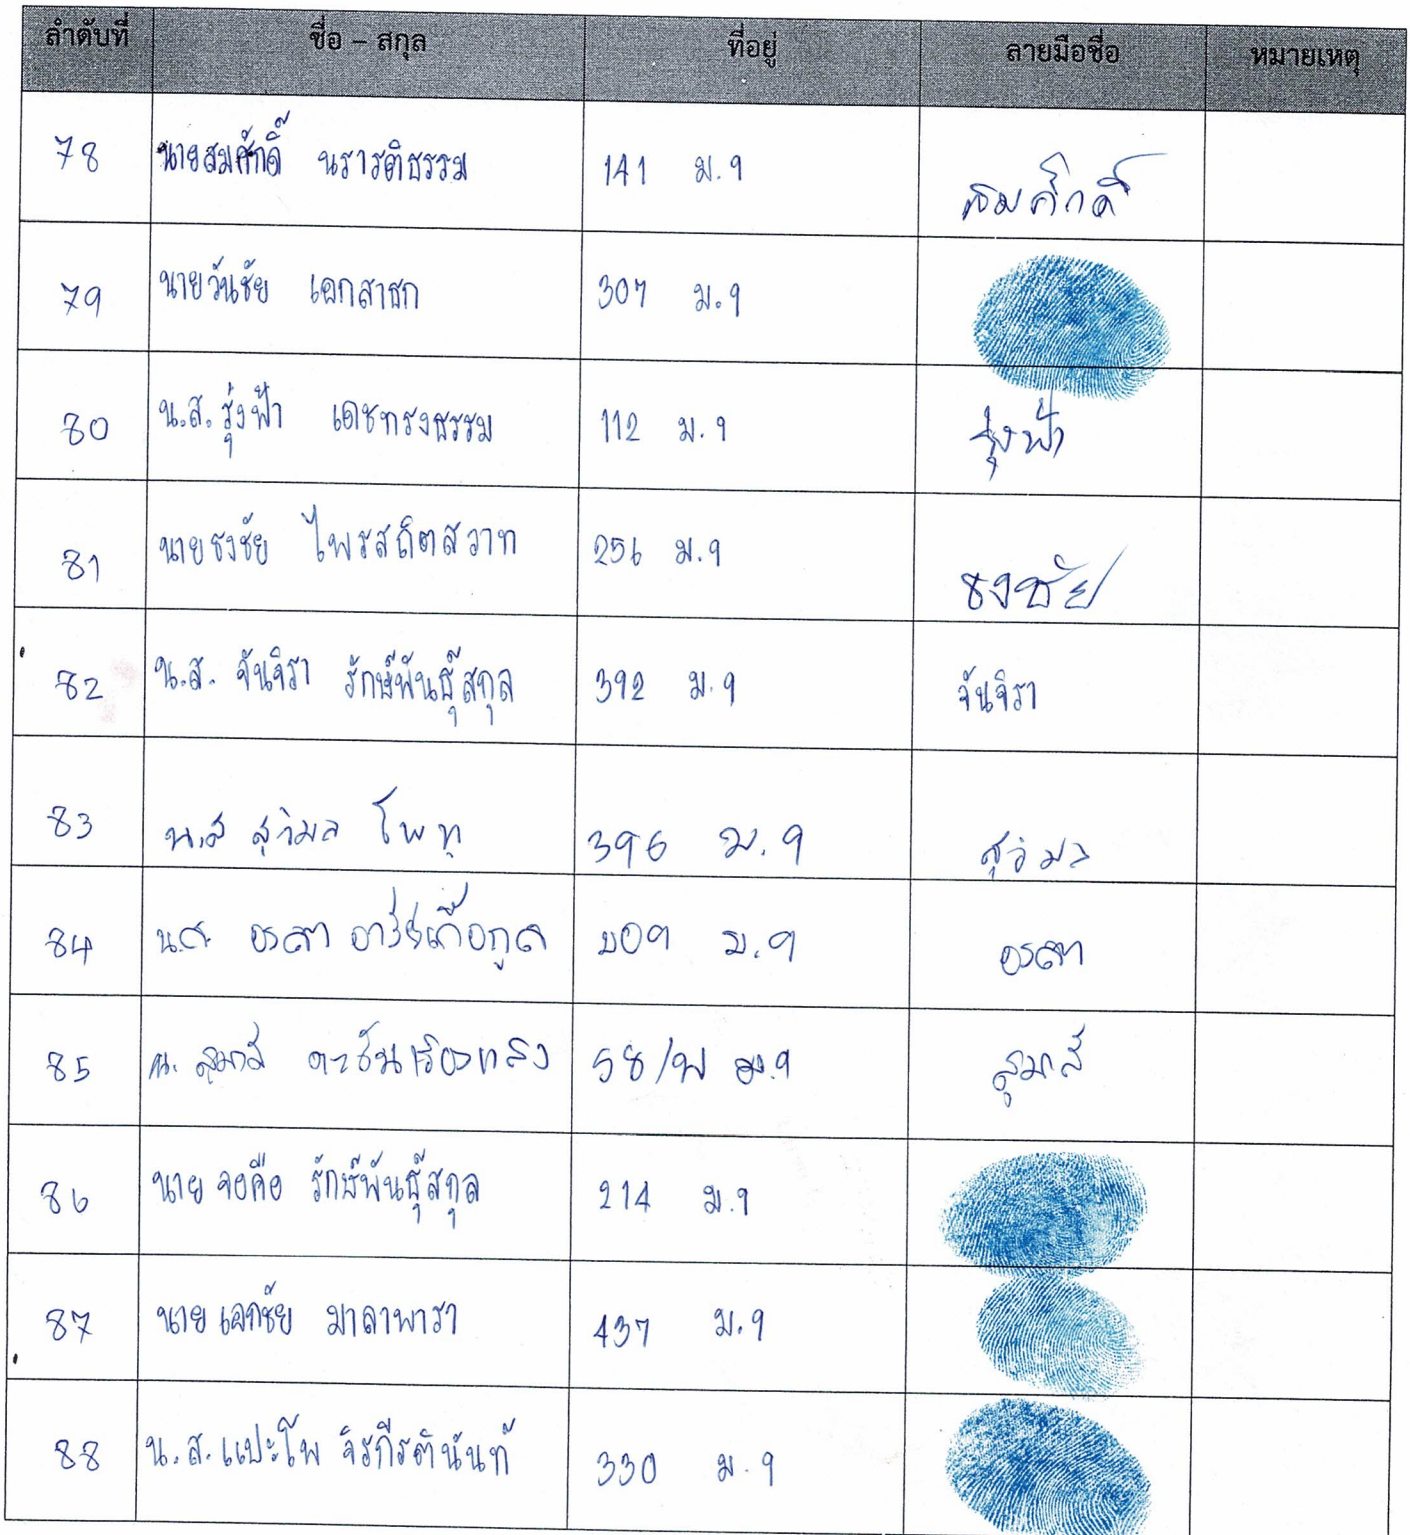 ลำดับที่ ชื่อ – สกุล ที่อยู่ ลายมือชื่อ หมายเหตุ
78 นายสมศักดิ์ นรารติธรรม 141 ม.9 สมศักดิ์
79 นายวันชัย เอกสาธก 307 ม.9
80 น.ส.รุ่งฟ้า เดชทรงธรรม 112 ม.9 รุ่งฟ้า
81 นายธงชัย ไพรสถิตสวาท 256 ม.9 ธงชัย
82 น.ส. จันจิรา รักษ์พันธุ์สกุล 392 ม.9 จันจิรา
83 น.ส สุวิมล โพทุ 396 ม.9 สุวิมล
84 น.ส. อรสา ม.9 อรสา
85 น. สุมาลี 58/ ม.9 สุมาลี
86 นาย จอคือ รักษ์พันธุ์สกุล 214 ม.9
87 นาย เอกชัย มาลาพารา 437 ม.9
88 น.ส.แปะโพ จิรกีรตินันท์ 330 ม.9